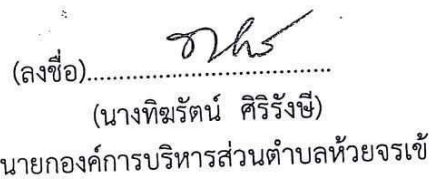 (ลงชื่อ)....................................
(นางทิฆรัตน์ ศิริรังษี)
นายกองค์การบริหารส่วนตำบลห้วยจรเข้